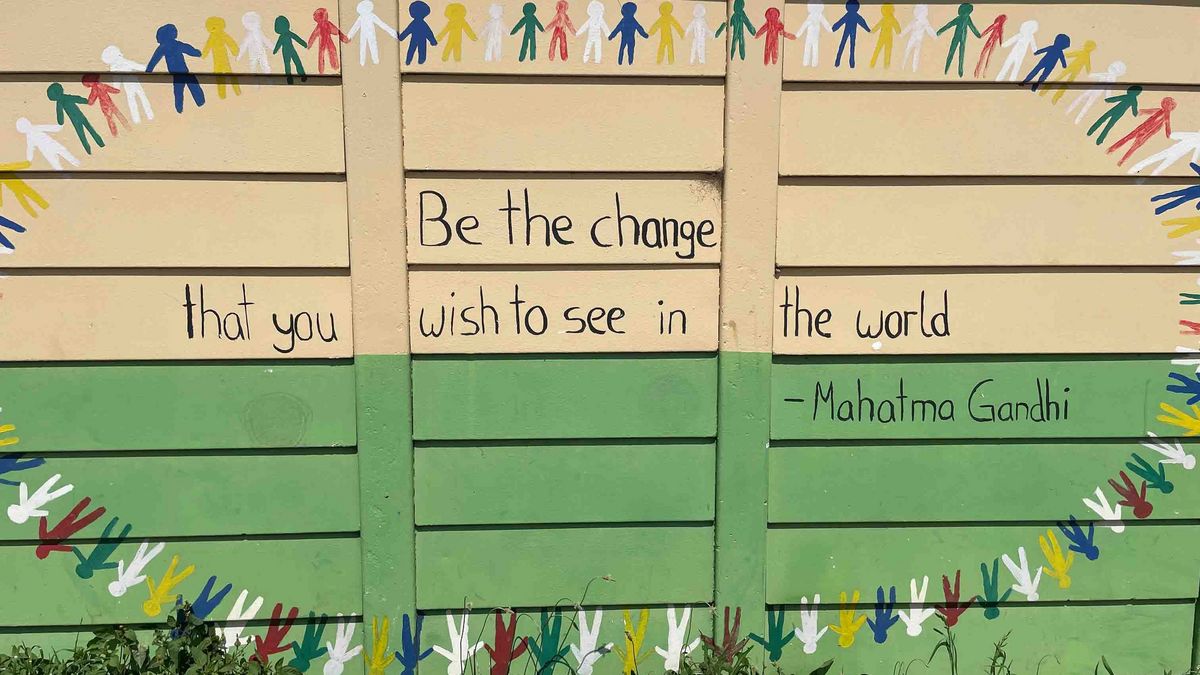 Be the change
that you wish to see in the world
- Mahatma Gandhi